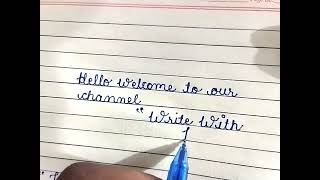 Hello welcome to our
channel
" Write With